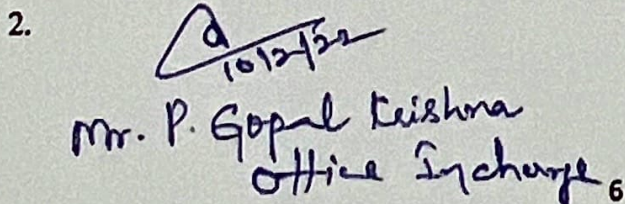 2.
10/2/22
Mr. P. Gopal Krishna
Office Incharge
6